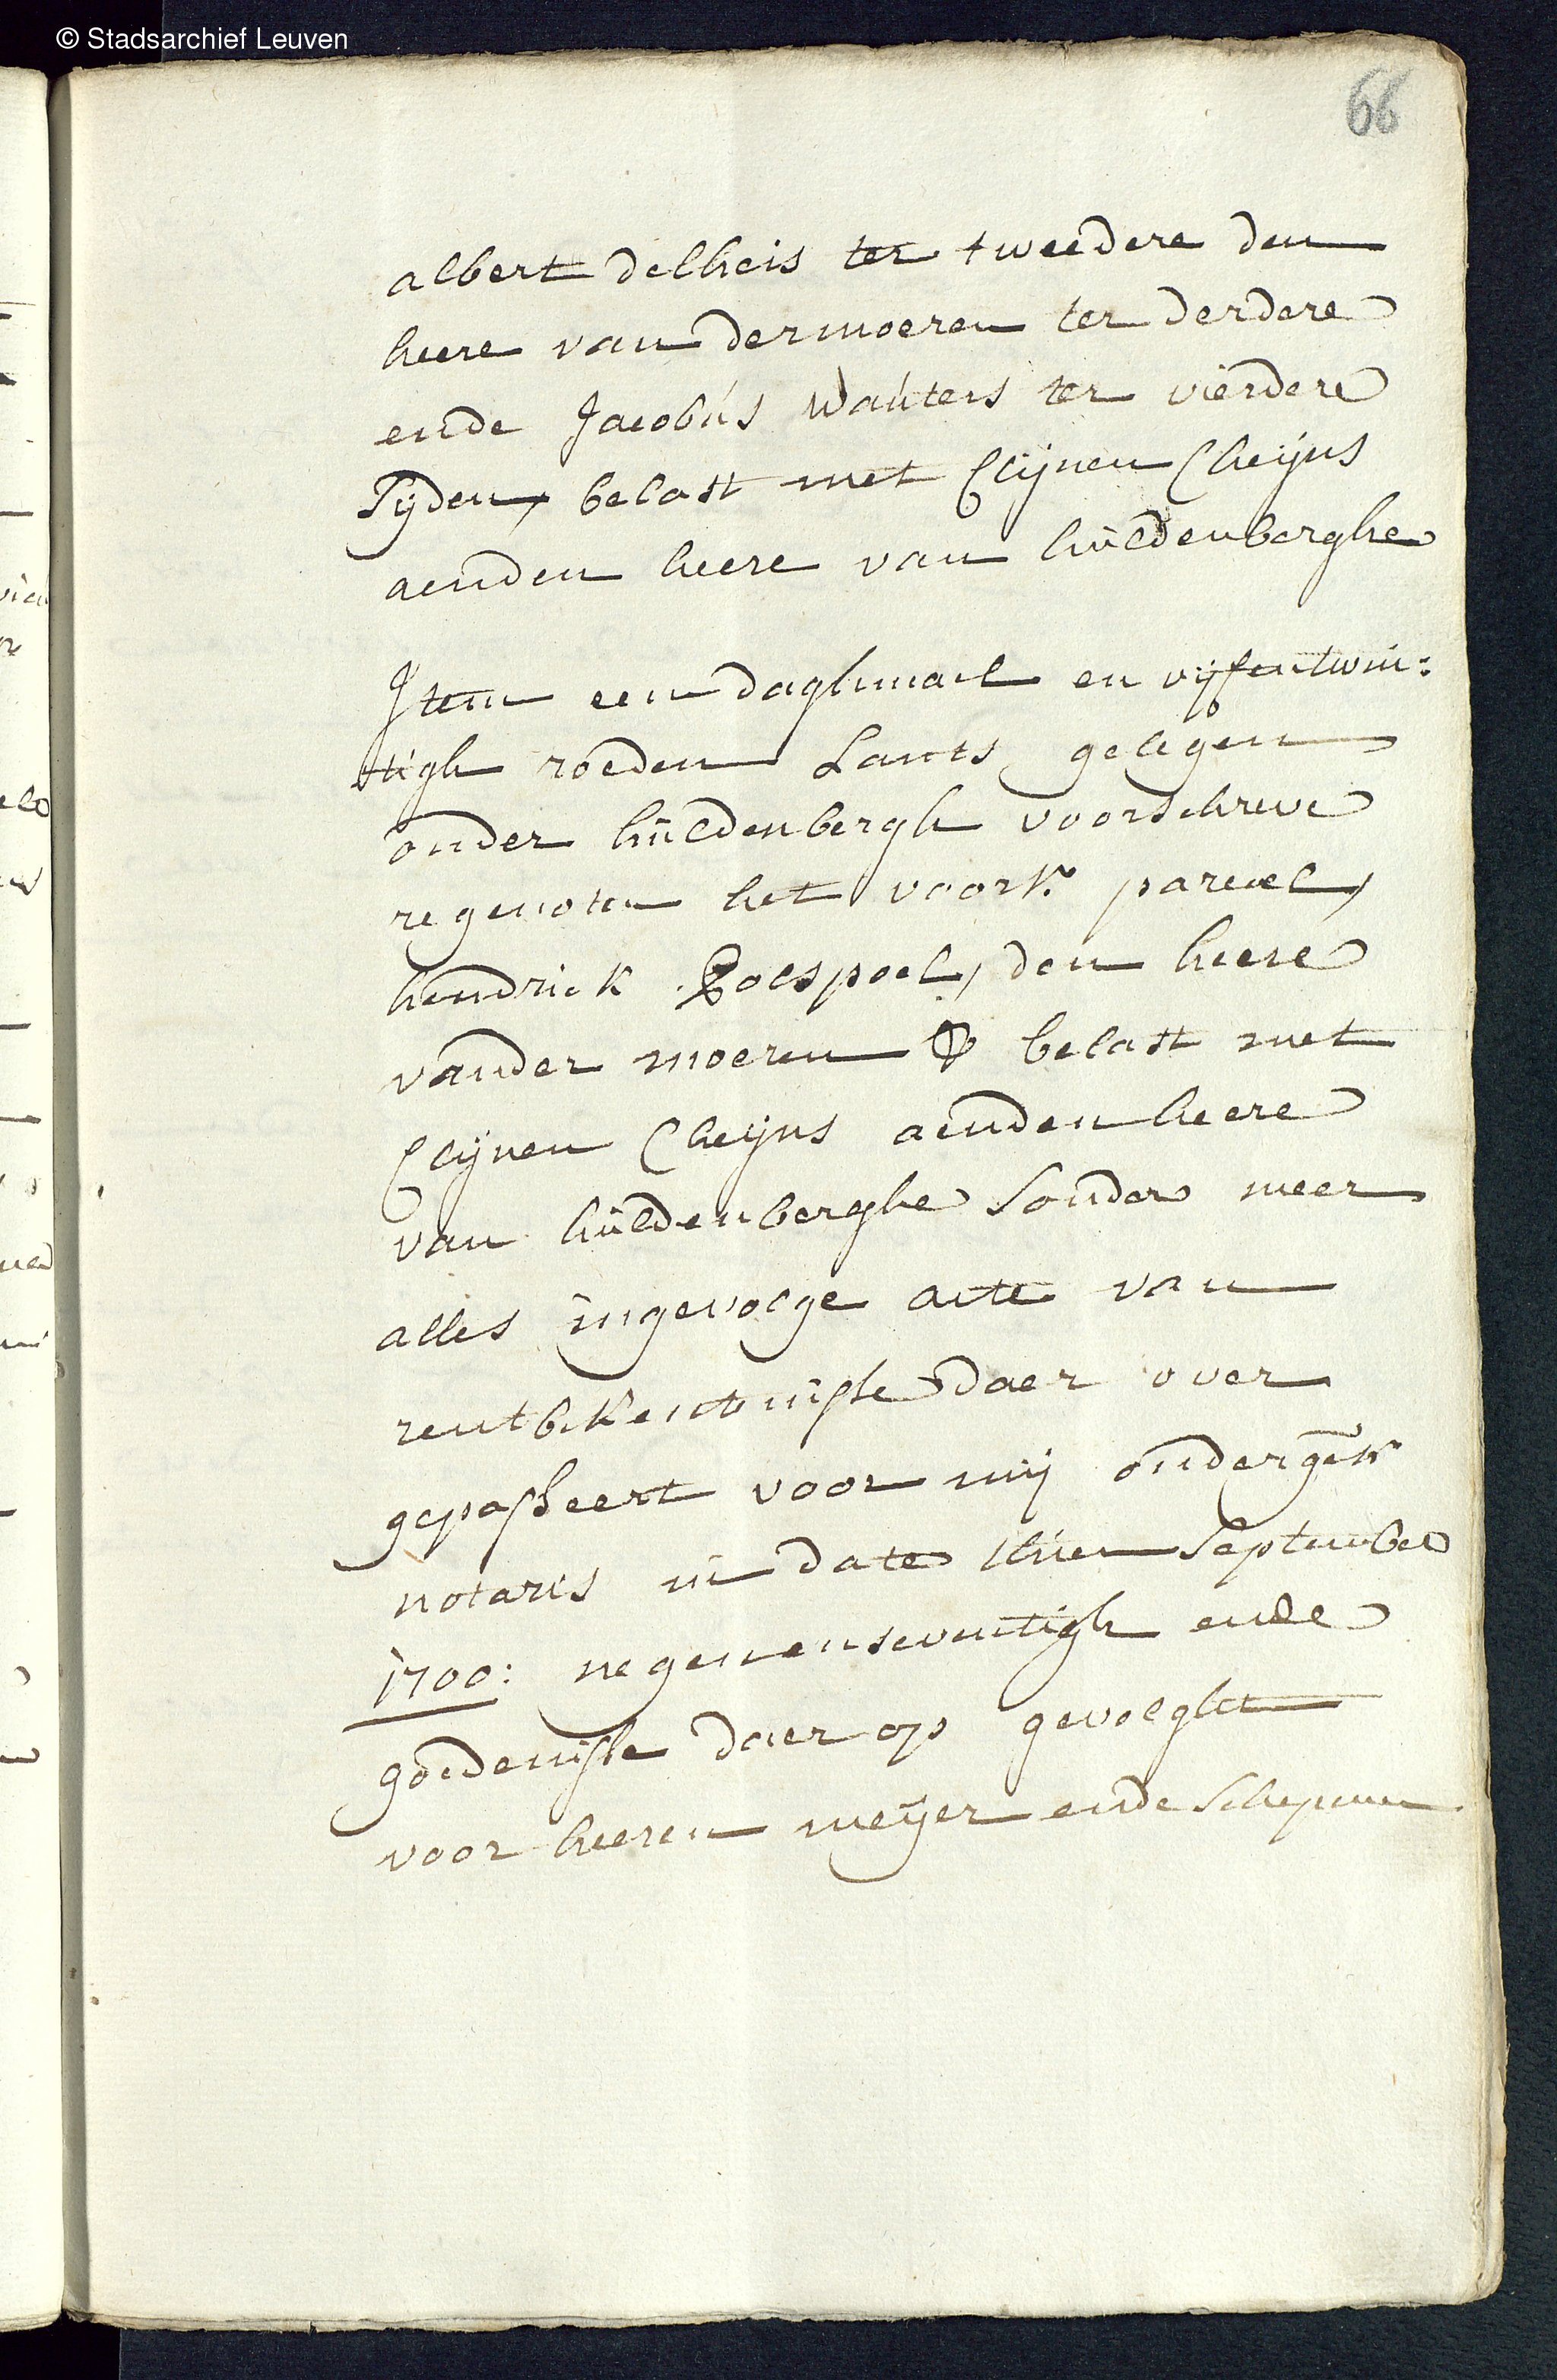 © Stadsarchief Leuven
66
albert delheis ter tweedere den
heere van dermoeren ter derdere
ende Jacobús Waúters ter vierdere
Sijden, belast met Clijnen Cheijns
aenden heere van húldenberghe
Item een daghmael en vijfentwin:
tigh roeden Lants gelegen
onder húldenbergh voorschreve
regenoten het voors. parceel,
hendrick Roelspoel, den heere
vander moeren & belast met
Clijnen Cheijns aenden heere
van húldenberghe sonder meer
alles ingevolge acte van
rentbekentenisse daer over
gepasseert voor mij ondergesr
notaris in date thien september
1700: negenenseventigh ende
goedenisse daer op gevolght
voor heeren meijer ende schepenen